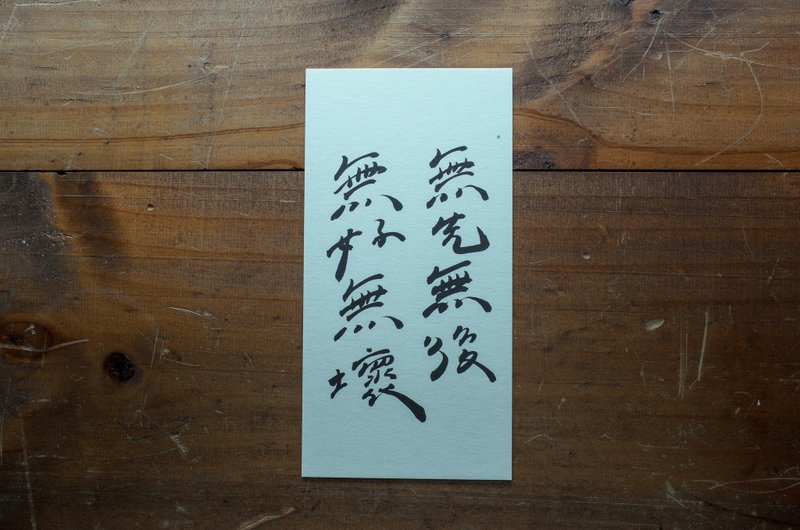 無先無後
無好無壞